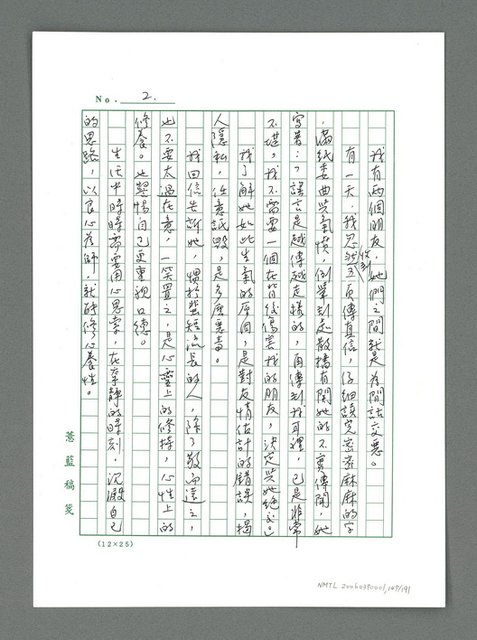 No. 2.
我有兩個朋友，她們之間就是為閒話交惡。
有一天，我忽然收到五頁傳真信，仔細讀完密密麻麻的字
，滿紙委曲與氣憤，例舉到處散播有關她的不實傳聞，她
寫著：「謠言是越傳越走樣的，再傳到我耳裡，已是非常
不堪，我不需要一個在背後傷害我的朋友，決定與她絕交。」
我了解她如此生氣的原因，是對友情估計的錯誤，揭
人隱私，任意詆毀，是多麼惡毒。
我回信告訴她，慣於蜚短流長的人，除了敬而遠之，
也不要太過在意，一笑置之，是心靈上的修持，心性上的
修養。也警惕自己更重視口德。
生活中時時需要用心思索，在寧靜的時刻，沉澱自己
的思路，以良心為師，就能修心養性。
薏藍稿箋
(12×25)
NMTL 20060390001_149/191